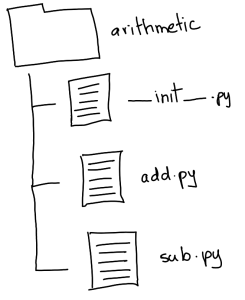 arithmetic
__init__.py
add.py
sub.py